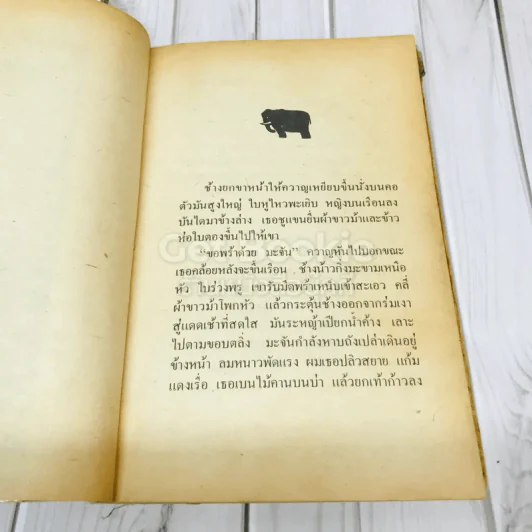 ช้างยกขาหน้าให้ควาญเหยียบขึ้นนั่งบนคอ
ตัวมันสูงใหญ่ ใบหูไหวพะเยิบ หญิงบนเรือนลง
บันไดมาข้างล่าง เธอชูแขนยื่นผ้าขาวม้าและข้าว
ห่อใบตองขึ้นไปให้เขา
"ขอพร้าด้วย มะจัน" ควาญหันไปบอกขณะ
เธอคล้อยหลังจะขึ้นเรือน ช้างน้าวกิ่งมะขามเหนือ
หัว ใบร่วงพรู เขารับมีดพร้าเหน็บเข้าสะเอว คลี่
ผ้าขาวม้าโพกหัว แล้วกระตุ้นช้างออกจากร่มเงา
สู่แดดเช้าที่สดใส มันระหญ้าเปียกน้ำค้าง เลาะ
ไปตามขอบตลิ่ง มะจันกำลังหาบถังเปล่าเดินอยู่
ข้างหน้า ลมหนาวพัดแรง ผมเธอปลิวสยาย แก้ม
แดงเรื่อ เธอเบนไม้คานบนบ่า แล้วยกเท้าก้าวลง